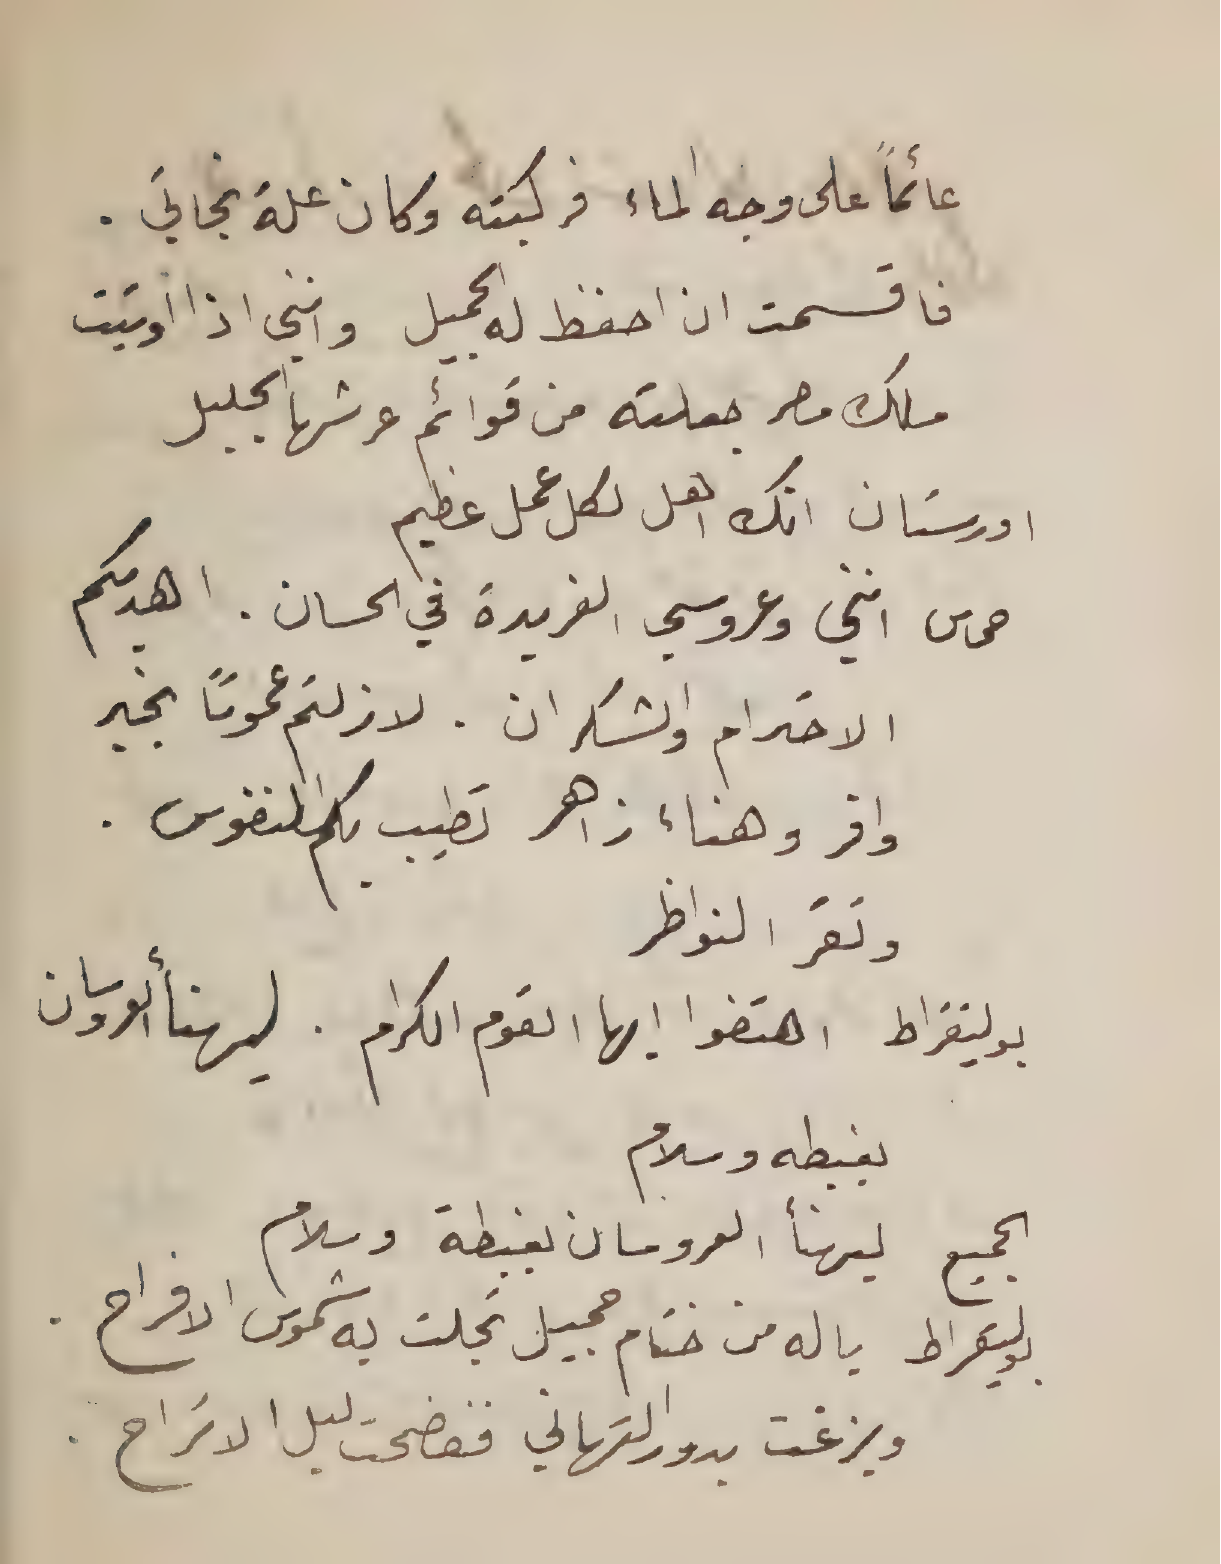 عائماً على وجه الماء فركبته وكان علة نجاتي .
فاقسمت ان احفظ له الجميل وانني اذا اوتيت
ملك مصر جعلته من قوائم عرشها الجليل
اورستان انك اهل لكل عمل عظيم
حماس انني وعروسي الفريدة في الحسان . اهديكم
الاحترام والشكران . لا زلتم عموماً بخير
وافر وهناء زاهر تطيب بكم النفوس .
وتقر النواظر
بوليتقراط اهتفوا ايها القوم الكرام . ليهنأ العروسان
بغبطه وسلام
الجميع ليهنأ العروسان بغبطة وسلام
بوليتقراط ياله من ختام جميل تجلت به شموس الافراح .
وبزغت بدور التهاني ففضحت ليل الاتراح .